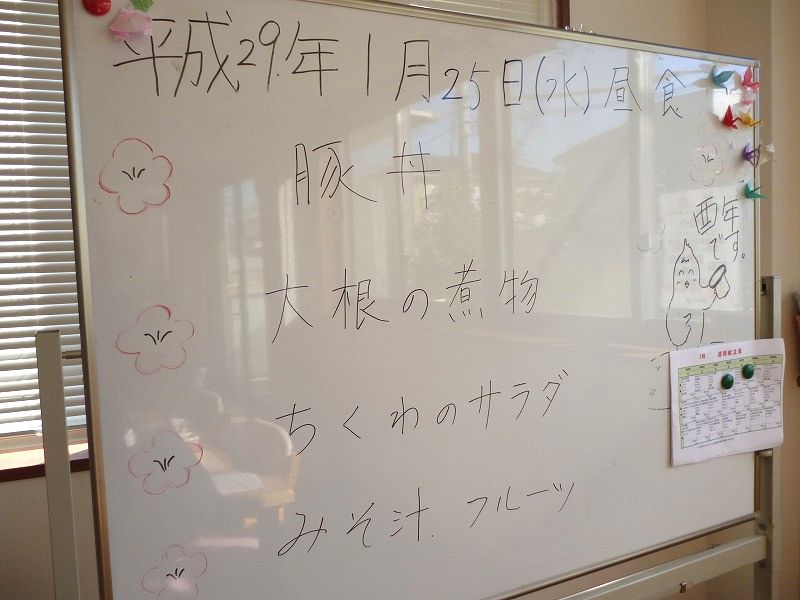 平成29年1月25日(水)昼食
豚丼
酉年
です。
大根の煮物
ちくわのサラダ
みそ汁 フルーツ